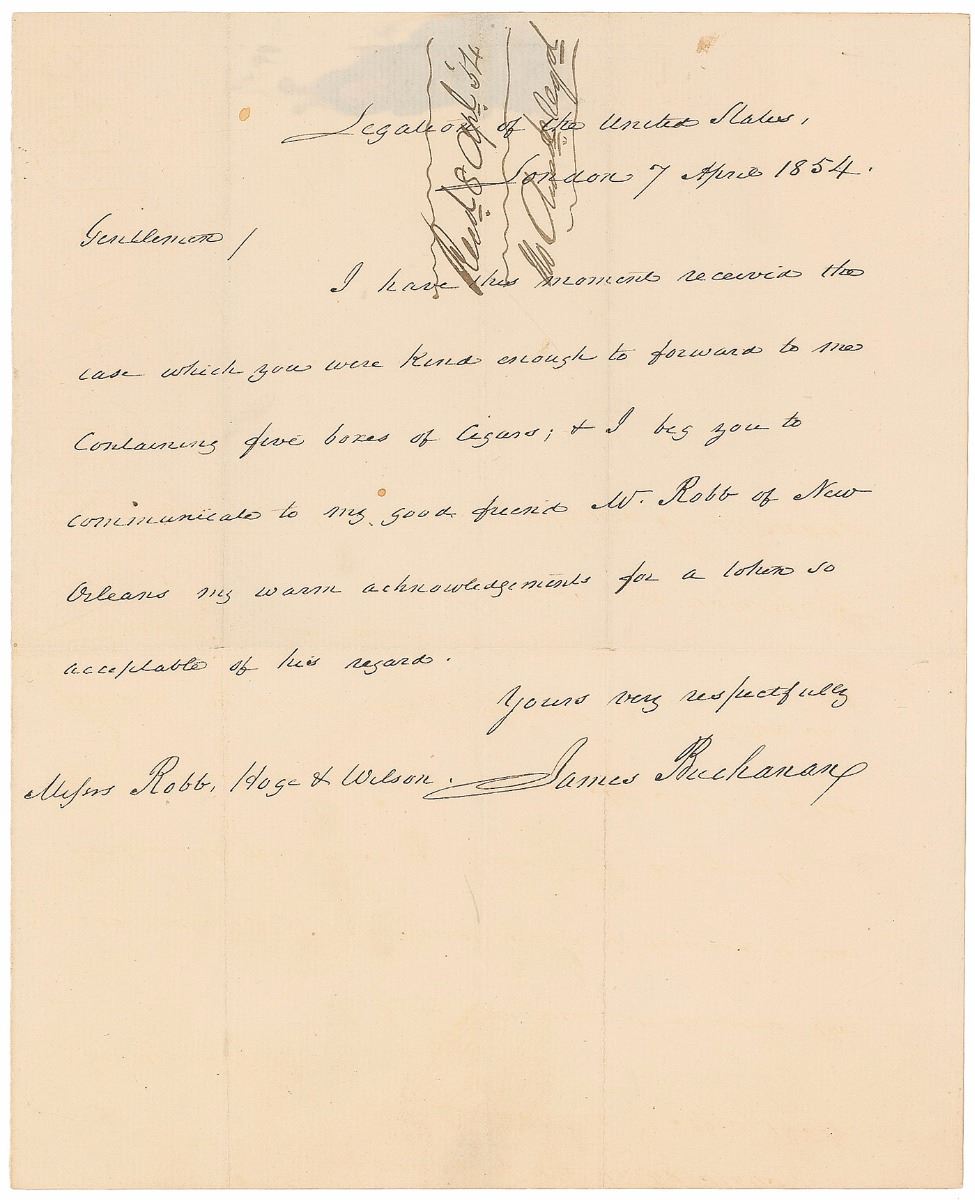 Legation of the United States,
London 7 April 1854.
Gentlemen /
I have this moment received the
case which you were kind enough to forward to me
containing five boxes of cigars; & I beg you to
communicate to my good friend Mr. Robb of New
Orleans my warm acknowledgements for a token so
acceptable of his regard.
Yours very respectfully
James Buchanan
Messrs Robb, Hoge & Wilson.
Recd 8 Apl '54